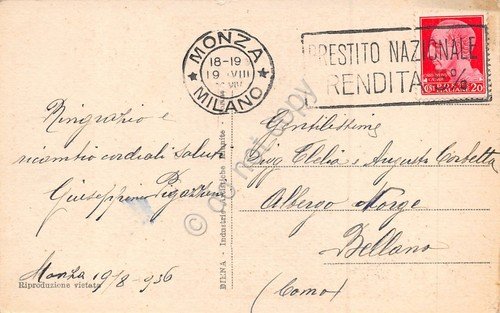 MONZA
18-19
19 VIII
MILANO
PRESTITO NAZIONALE
RENDITA %
20
Ringrazio e
ricambio cordiali saluti
Giuseppina
Monza 19/8-936
Riproduzione vietata
DIENA - Industrie Grafiche Riunite
Gentilissime
Sigg Clelia e Augusta Corbetta
Albergo Norge
Bellano
(Como)
do not copy